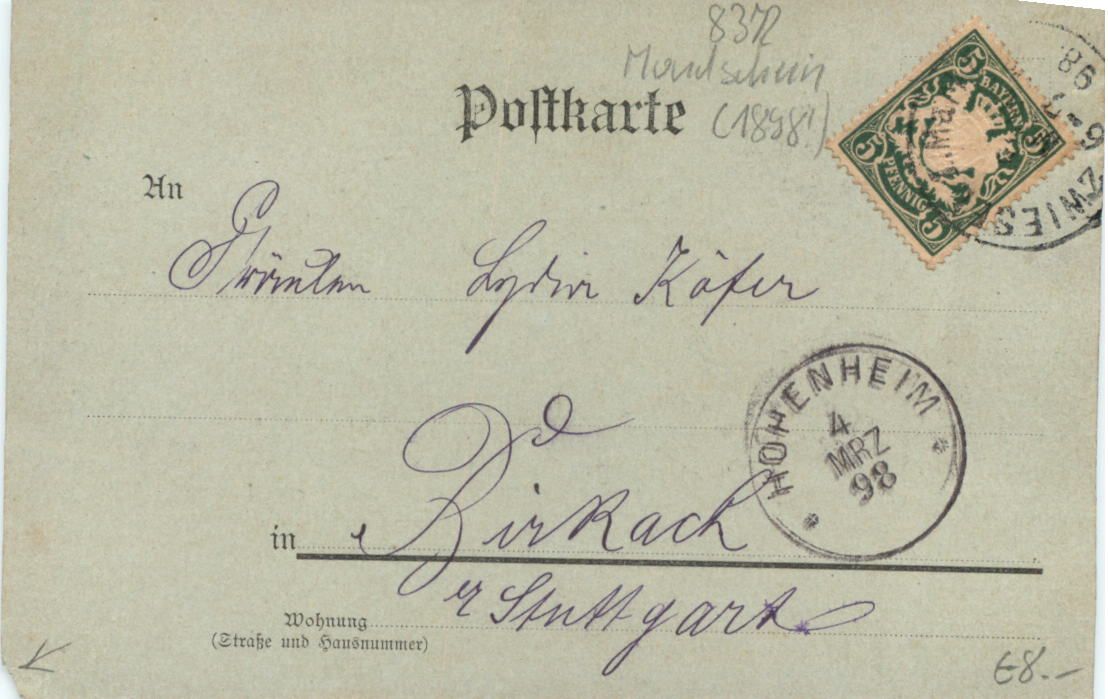 8372
Mondschein
(1898!)
Postkarte
5 BAYERN 5
5 PFENNIG 5
ZWIES
98
An
Fräulein Lydia Käfer
HOHENHEIM
4
MRZ
98
in Birkach
Stuttgart
Wohnung
(Straße und Hausnummer)
€8.--